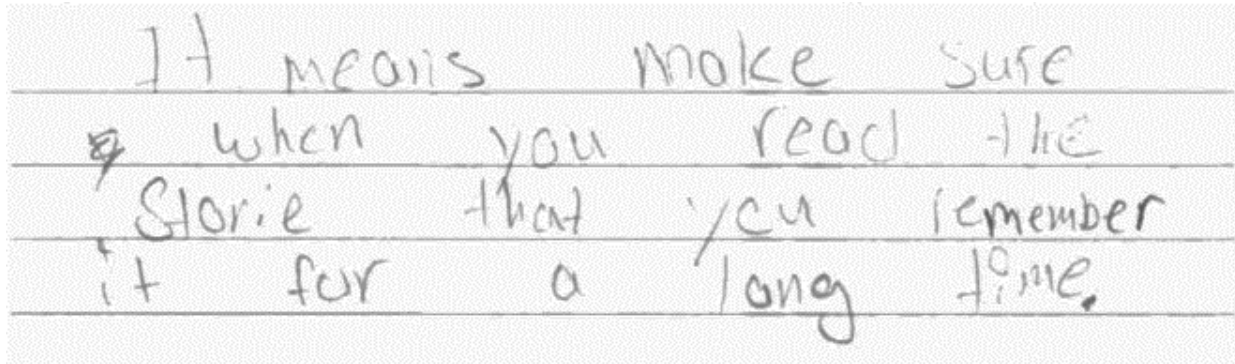 It means make sure
when you read the
Storie that you remember
it for a long time.